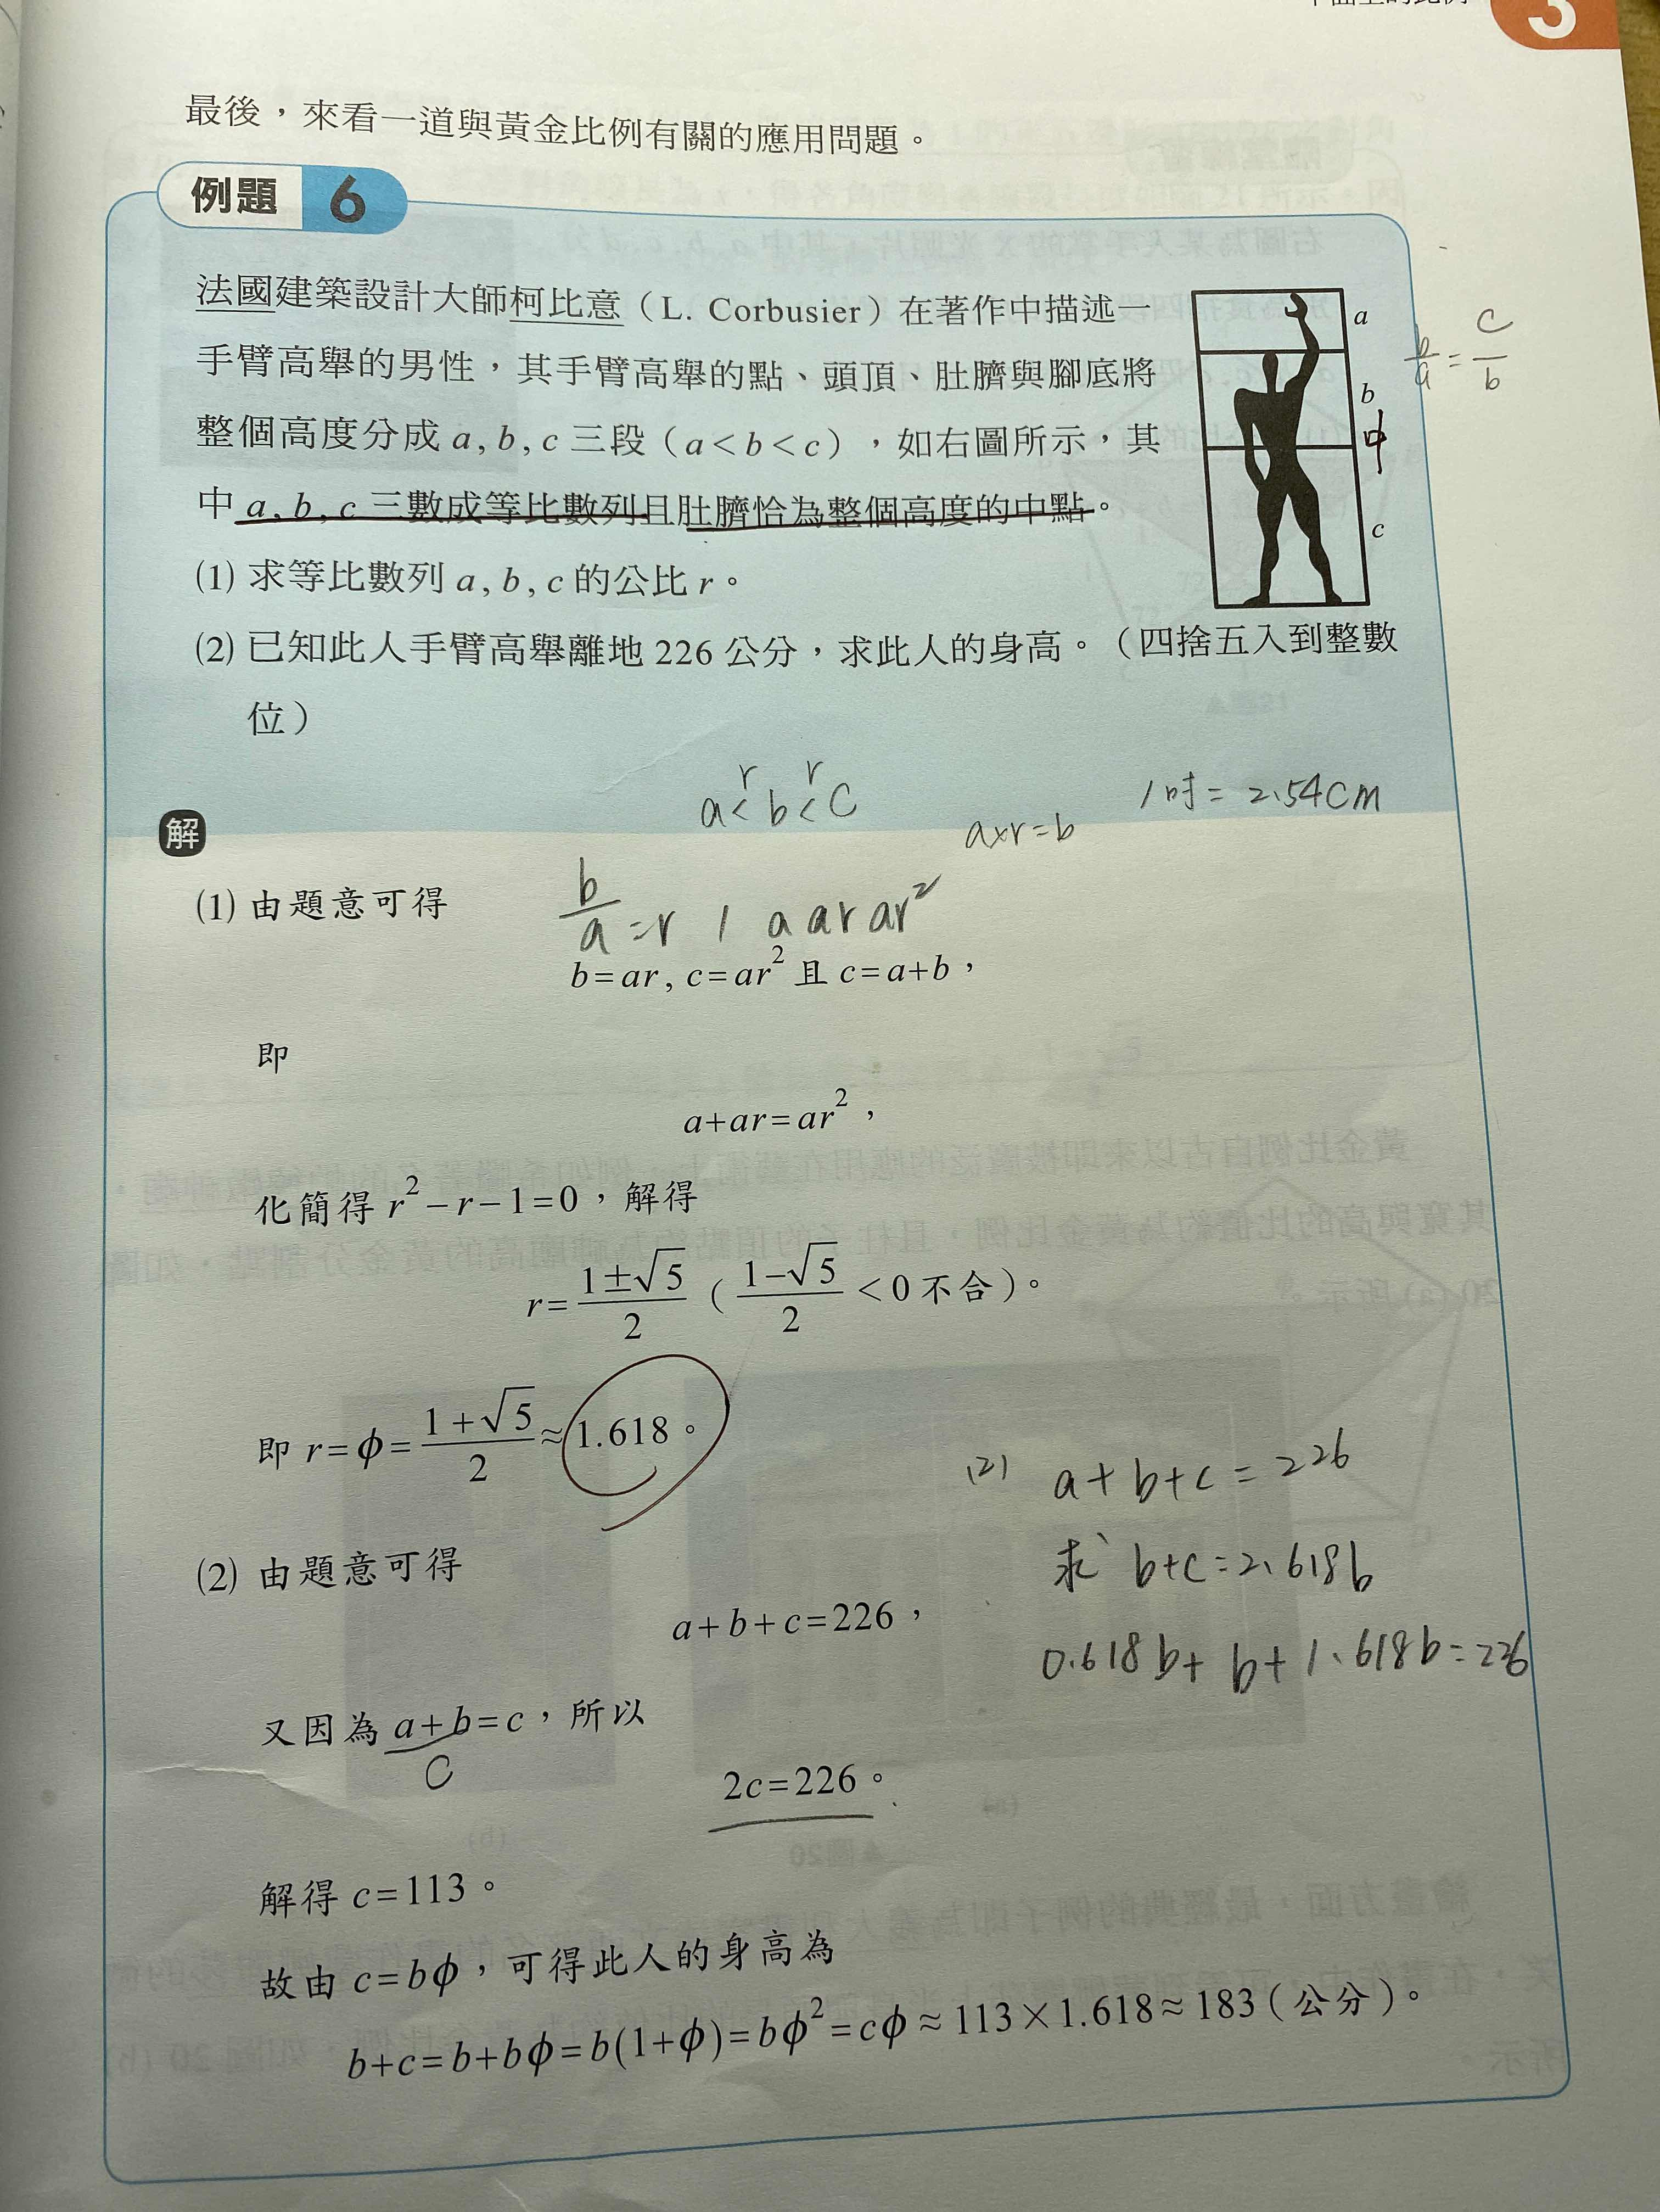 3
最後，來看一道與黃金比例有關的應用問題。
例題 6
法國建築設計大師柯比意（L. Corbusier）在著作中描述一
手臂高舉的男性，其手臂高舉的點、頭頂、肚臍與腳底將
整個高度分成 a, b, c 三段（a<b<c），如右圖所示，其
中 a, b, c 三數成等比數列且肚臍恰為整個高度的中點。
(1) 求等比數列 a, b, c 的公比 r。
(2) 已知此人手臂高舉離地 226 公分，求此人的身高。（四捨五入到整數
位）
a
b
中
c
b/a = c/b
r r
a < b < C
a×r=b
1吋= 2.54cm
解
(1) 由題意可得
b/a =r / a ar ar²
b=ar, c=ar² 且 c=a+b，
即
a+ar=ar²，
化簡得 r²−r−1=0，解得
r= (1±√5)/2（(1−√5)/2 <0 不合）。
即 r=ϕ= (1+√5)/2 ≈1.618。
(2) a+b+c=226
求 b+c=2.618b
0.618b+b+1.618b=226
(2) 由題意可得
a+b+c=226，
又因為 a+b=c，所以
C
2c=226。
解得 c=113。
故由 c=bϕ，可得此人的身高為
b+c=b+bϕ=b(1+ϕ)=bϕ²=cϕ≈113×1.618≈183（公分）。